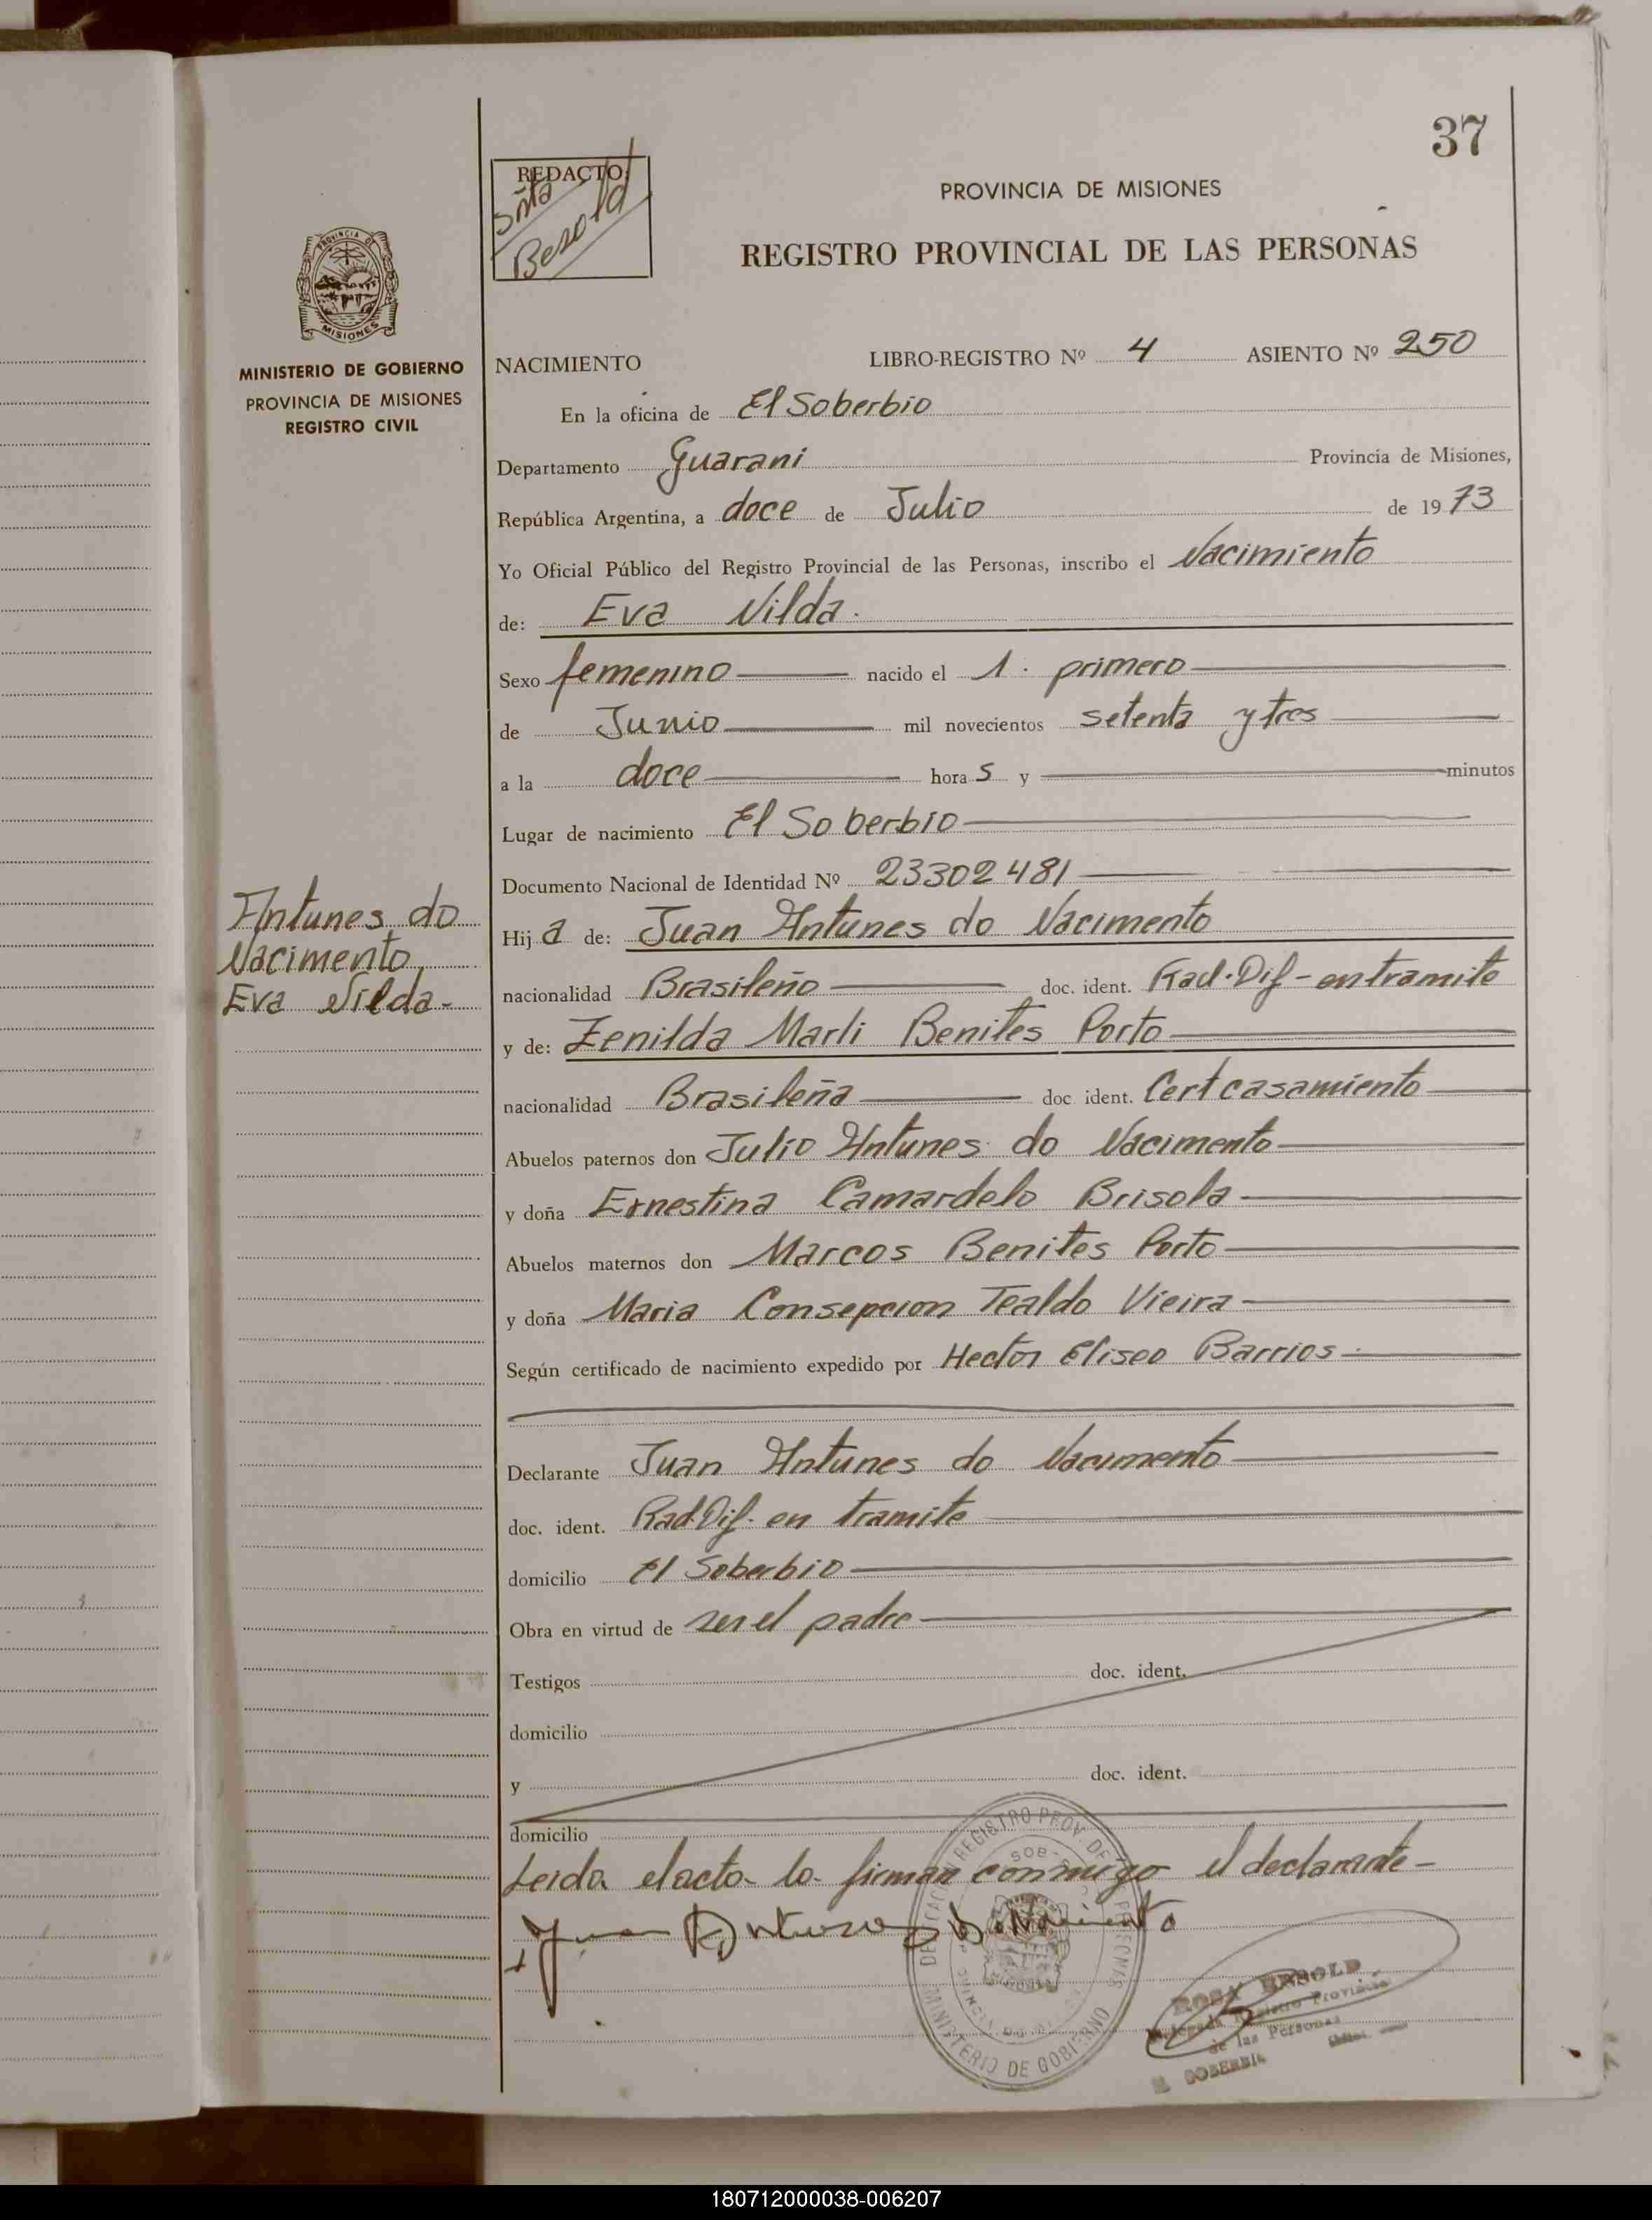 37
REDACTO:
Sñta
Besold
PROVINCIA DE MISIONES
REGISTRO PROVINCIAL DE LAS PERSONAS
PROVINCIA DE
MISIONES
MINISTERIO DE GOBIERNO
PROVINCIA DE MISIONES
REGISTRO CIVIL
NACIMIENTO LIBRO-REGISTRO Nº 4 ASIENTO Nº 250
En la oficina de El Soberbio
Departamento Guarani Provincia de Misiones,
República Argentina, a doce de Julio de 1973
Yo Oficial Público del Registro Provincial de las Personas, inscribo el Nacimiento
de: Eva Nilda.
Sexo femenino nacido el 1. primero
de Junio mil novecientos setenta y tres
a la doce hora s y minutos
Lugar de nacimiento El Soberbio
Documento Nacional de Identidad Nº 23302481
Antunes do
Nacimento,
Eva Nilda-
Hija de: Juan Antunes do Nacimento
nacionalidad Brasileño doc. ident. Rad. Dif - en tramite
y de: Zenilda Marli Benites Porto
nacionalidad Brasileña doc. ident. Cert casamiento
Abuelos paternos don Julio Antunes do Nacimento
y doña Ernestina Camardelo Brisola
Abuelos maternos don Marcos Benites Porto
y doña Maria Consepcion Tealdo Vieira
Según certificado de nacimiento expedido por Hector Eliseo Barrios
Declarante Juan Antunes do Nacimento
doc. ident. Rad. Dif. en tramite
domicilio El Soberbio
Obra en virtud de ser el padre
Testigos doc. ident.
domicilio
y doc. ident.
domicilio
Leida el acta la firman conmigo el declarante-
Juan Antunes do Nacimento
REGISTRO PROV. DE
MINISTERIO DE GOBIERNO
ROSA BESOLD
Delegada Registro Provincial
de las Personas
SOBERBIO
180712000038-006207